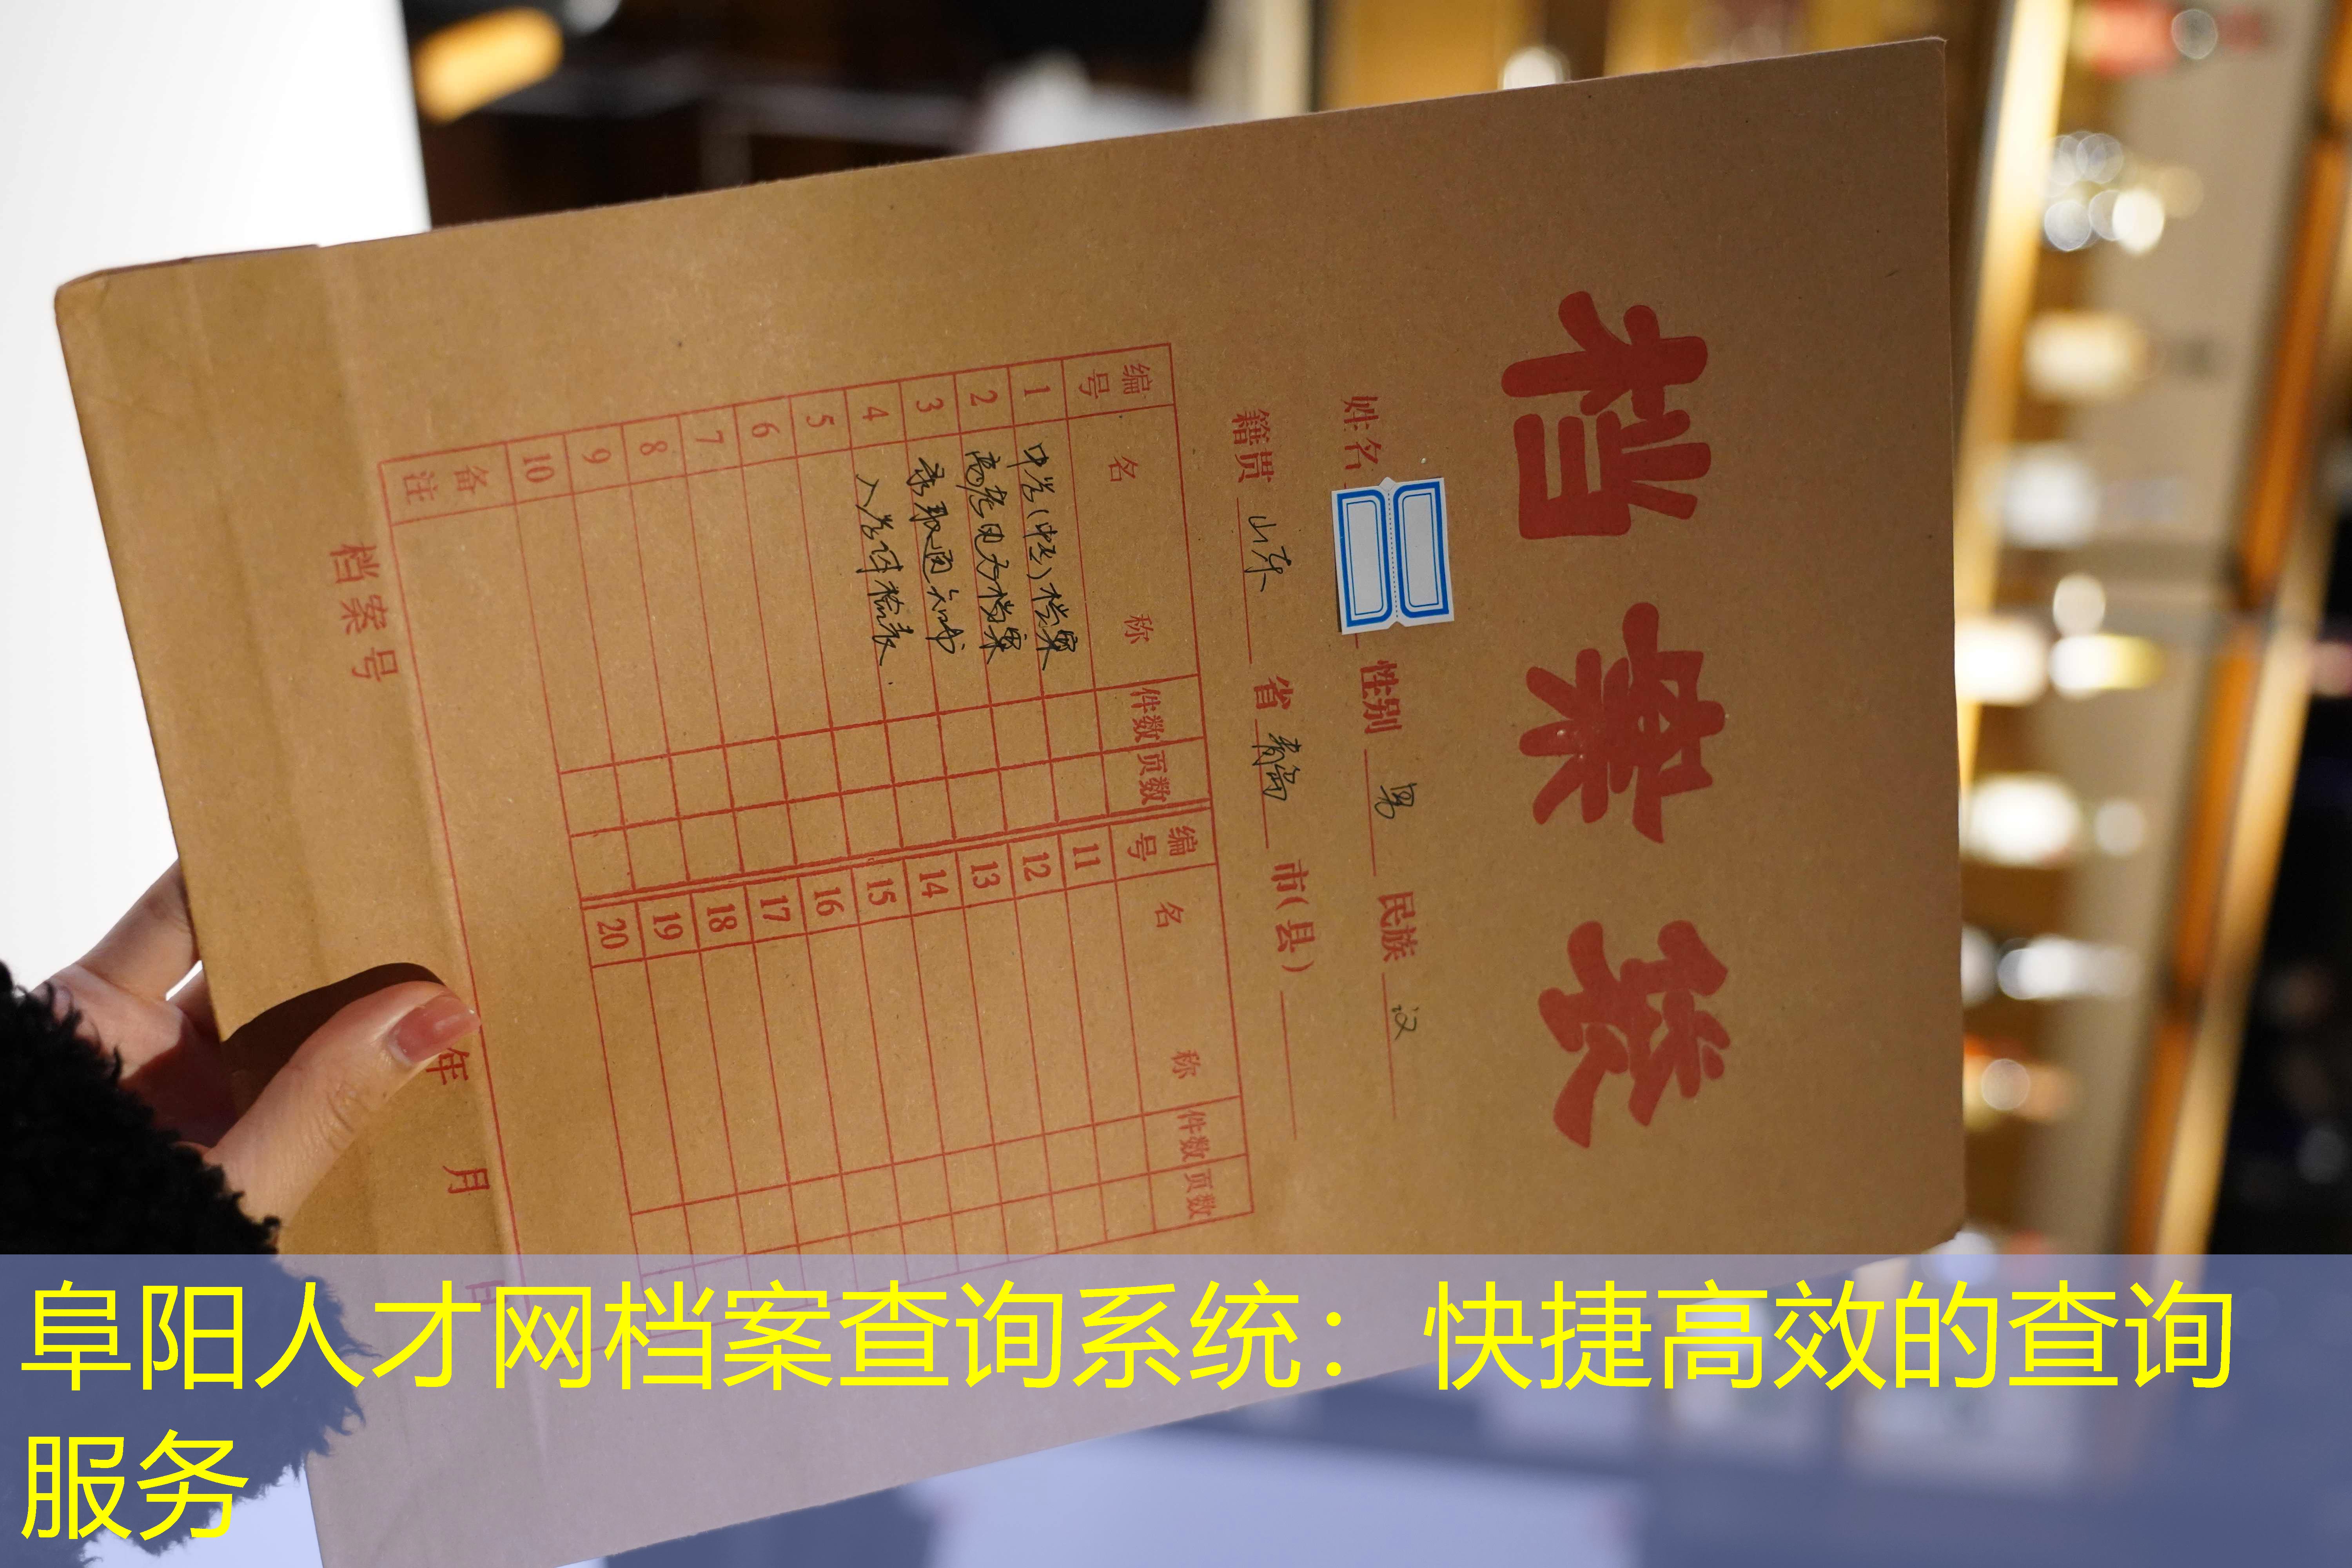 档案袋
姓名 性别 男 民族 汉
籍贯 山东 省 青岛 市(县)
编号 名称 件数 页数 编号 名称 件数 页数
1 中学(中专)档案 11
2 高考电子档案 12
3 录取通知书 13
4 入学体检表 14
5 15
6 16
7 17
8 18
9 19
10 20
备注
档案号 年 月 日
阜阳人才网档案查询系统：快捷高效的查询
服务